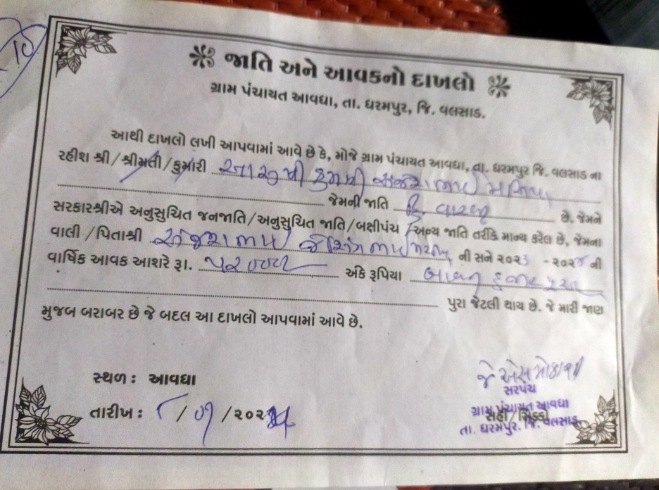 10
જાતિ અને આવકનો દાખલો
ગ્રામ પંચાયત આવધા, તા. ધરમપુર, જિ. વલસાડ.
આથી દાખલો લખી આપવામાં આવે છે કે, મોજે ગ્રામ પંચાયત આવધા, તા. ધરમપુર જિ. વલસાડ ના
રહીશ શ્રી/શ્રીમતી/કુમારી
જેમની જાતિ હિ. વારલી છે. જેમને
સરકારશ્રીએ અનુસુચિત જનજાતિ/અનુસુચિત જાતિ/બક્ષીપંચ/અન્ય જાતિ તરીકે માન્ય કરેલ છે, જેમના
વાલી/પિતાશ્રી ની સને ૨૦૨૩ - ૨૦૨૪ ની
વાર્ષિક આવક આશરે રૂા. ૫૨૦૦૦ અંકે રૂપિયા બાવન હજાર પુરા
પુરા જેટલી થાય છે. જે મારી જાણ
મુજબ બરાબર છે જે બદલ આ દાખલો આપવામાં આવે છે.
સ્થળ : આવધા
તારીખ : / /૨૦૨૪
સરપંચ
ગ્રામ પંચાયત આવધા
સહી/સિક્કો
તા. ધરમપુર, જિ. વલસાડ